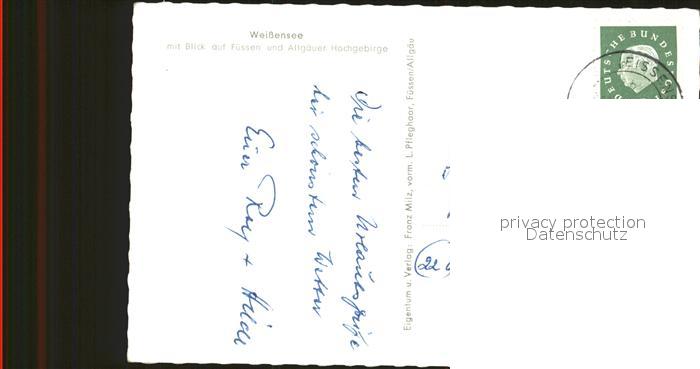 Weißensee
mit Blick auf Füssen und Allgäuer Hochgebirge
Die besten Urlaubsgrüße
bei schönstem Wetter
Euer Rolf + Hilde
Eigentum u. Verlag: Franz Milz, vorm. L. Pfleghaar, Füssen/Allgäu
(22
DEUTSCHE BUNDES
privacy protection
Datenschutz